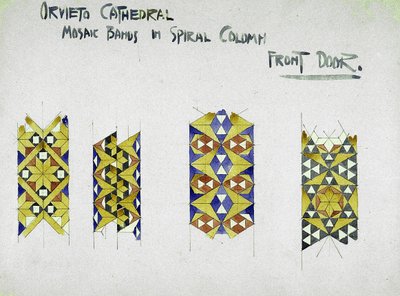 ORVIETO CATHEDRAL
MOSAIC BANDS IN SPIRAL COLUMN
FRONT DOOR.